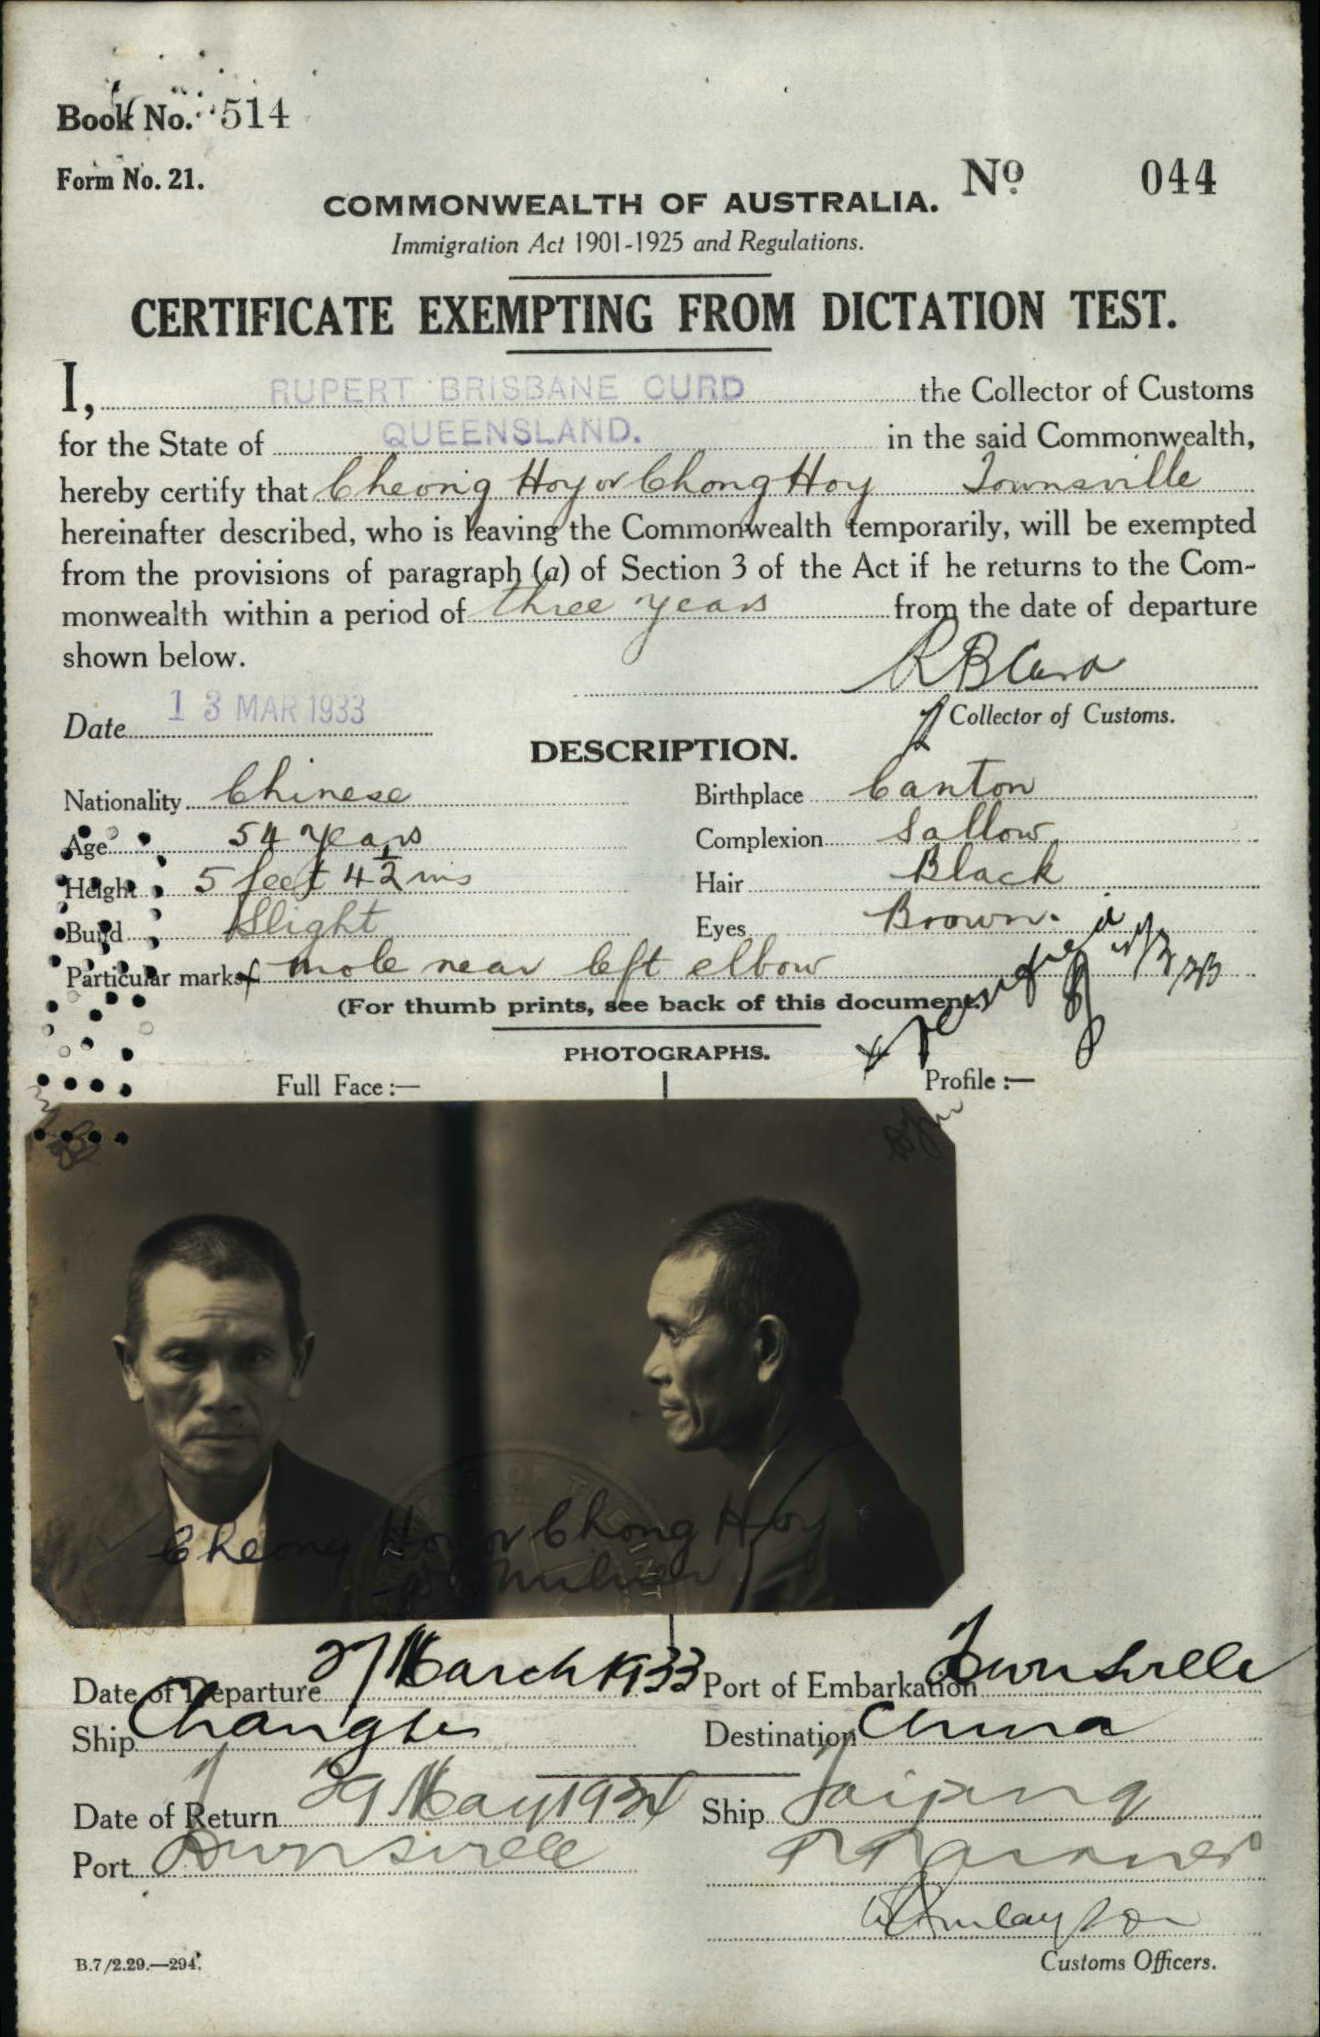 Book No. 514
Form No. 21.
No 044
COMMONWEALTH OF AUSTRALIA.
Immigration Act 1901-1925 and Regulations.
CERTIFICATE EXEMPTING FROM DICTATION TEST.
I, RUPERT BRISBANE CURD the Collector of Customs
for the State of QUEENSLAND. in the said Commonwealth,
hereby certify that Cheong Hoy or Chong Hoy Townsville
hereinafter described, who is leaving the Commonwealth temporarily, will be exempted
from the provisions of paragraph (a) of Section 3 of the Act if he returns to the Com-
monwealth within a period of three years from the date of departure
shown below.
R B Curd
Date 13 MAR 1933
Collector of Customs.
DESCRIPTION.
Nationality Chinese Birthplace Canton
Age 54 years Complexion Sallow
Height 5 feet 4½ ins Hair Black
Build Slight Eyes Brown.
Particular marks mole near left elbow
(For thumb prints, see back of this document.)
PHOTOGRAPHS.
Full Face :— Profile :—
Cheong Hoy or Chong Hoy
Date of Departure 27 March 1933 Port of Embarkation Townsville
Ship Changte Destination China
Date of Return 29 May 1934 Ship Taiping
Port Townsville
Customs Officers.
B.7/2.29.—294.